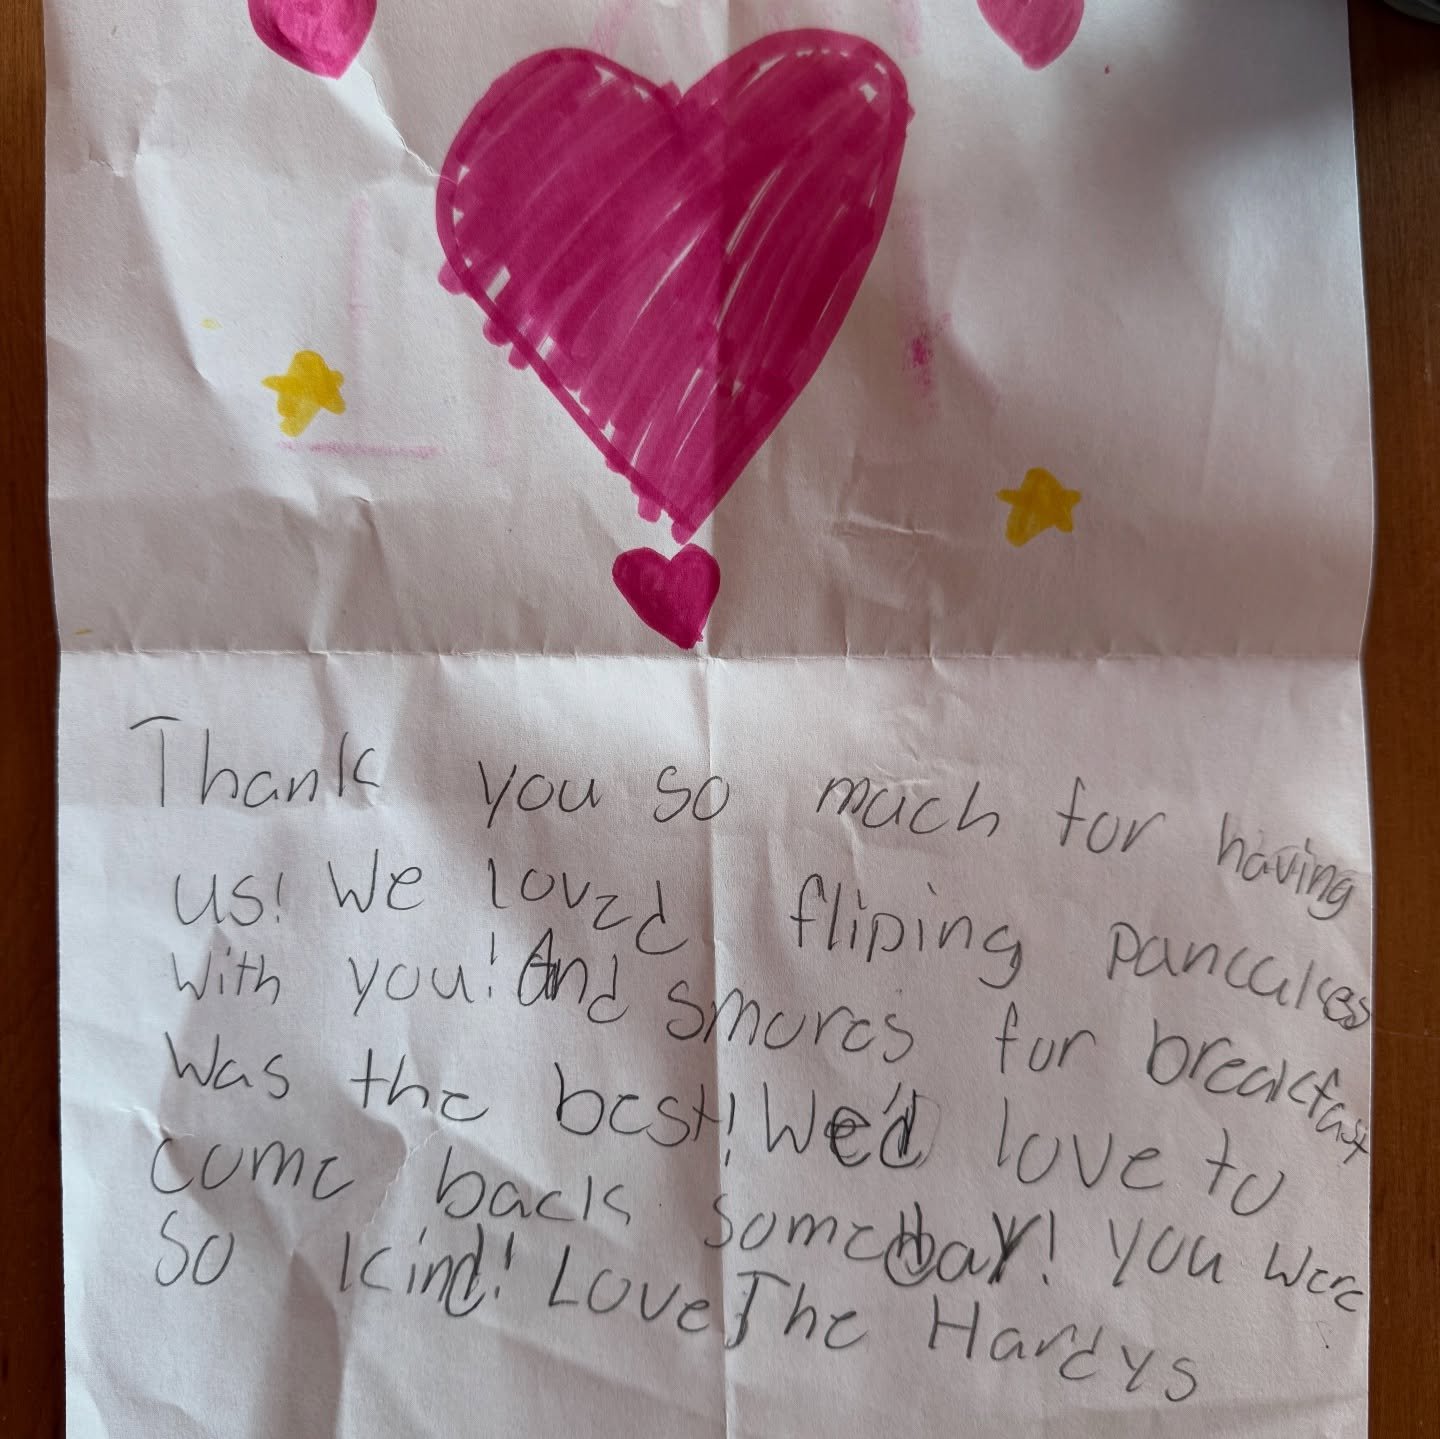 Thank you so much for having
us! We loved fliping pancakes
with you! And smores for breakfast
was the best! We'd love to
come back someday! You were
so kind! Love The Hardys